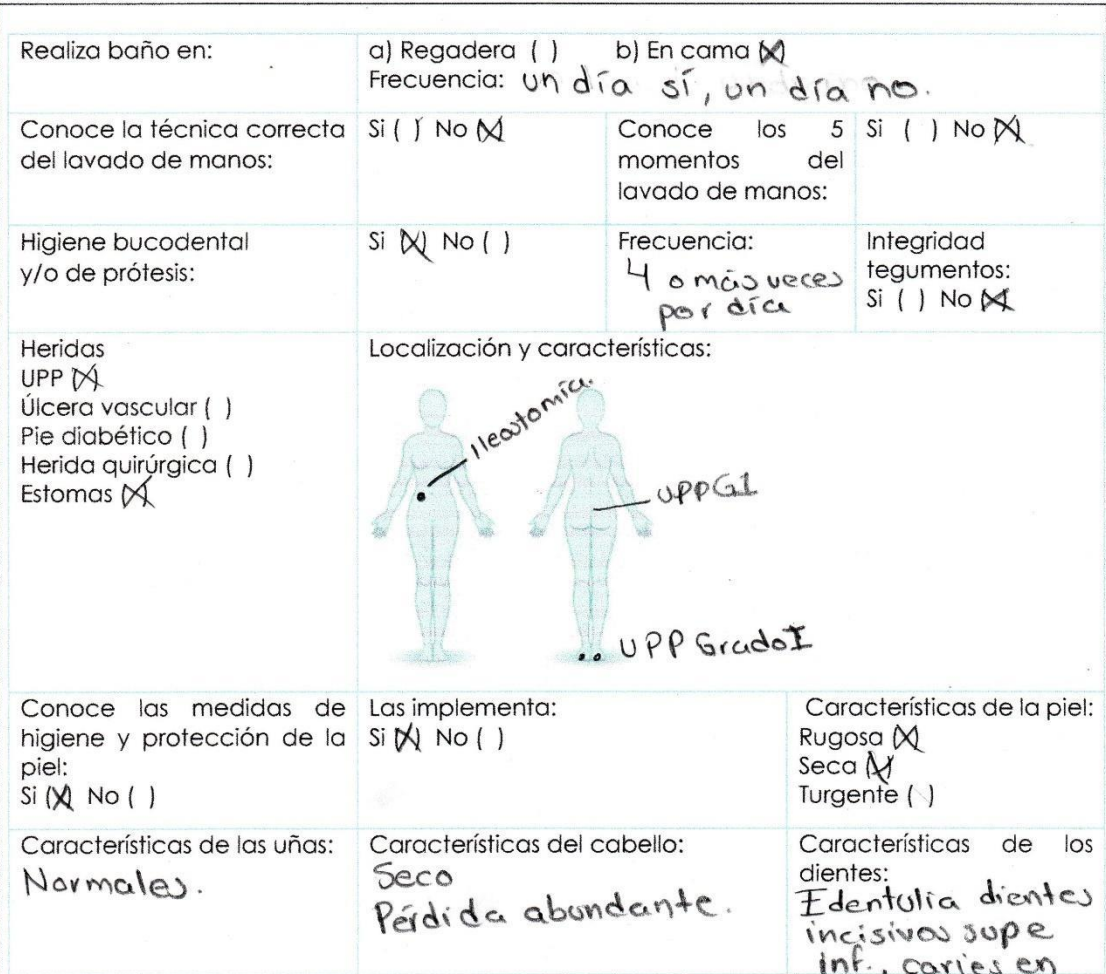 Realiza baño en:
a) Regadera ( ) b) En cama (X)
Frecuencia: un día sí, un día no.
Conoce la técnica correcta
del lavado de manos:
Si ( ) No (X)
Conoce los 5
momentos del
lavado de manos:
Si ( ) No (X)
Higiene bucodental
y/o de prótesis:
Si (X) No ( )
Frecuencia:
4 o más veces
por día
Integridad
tegumentos:
Si ( ) No (X)
Heridas
UPP (X)
Úlcera vascular ( )
Pie diabético ( )
Herida quirúrgica ( )
Estomas (X)
Localización y características:
Ileostomía.
UPP G1
UPP Grado I
Conoce las medidas de
higiene y protección de la
piel:
Si (X) No ( )
Las implementa:
Si (X) No ( )
Características de la piel:
Rugosa (X)
Seca (X)
Turgente ( )
Características de las uñas:
Normales.
Características del cabello:
Seco
Pérdida abundante.
Características de los
dientes:
Edentulia dientes
incisivos sup e
inf., caries en